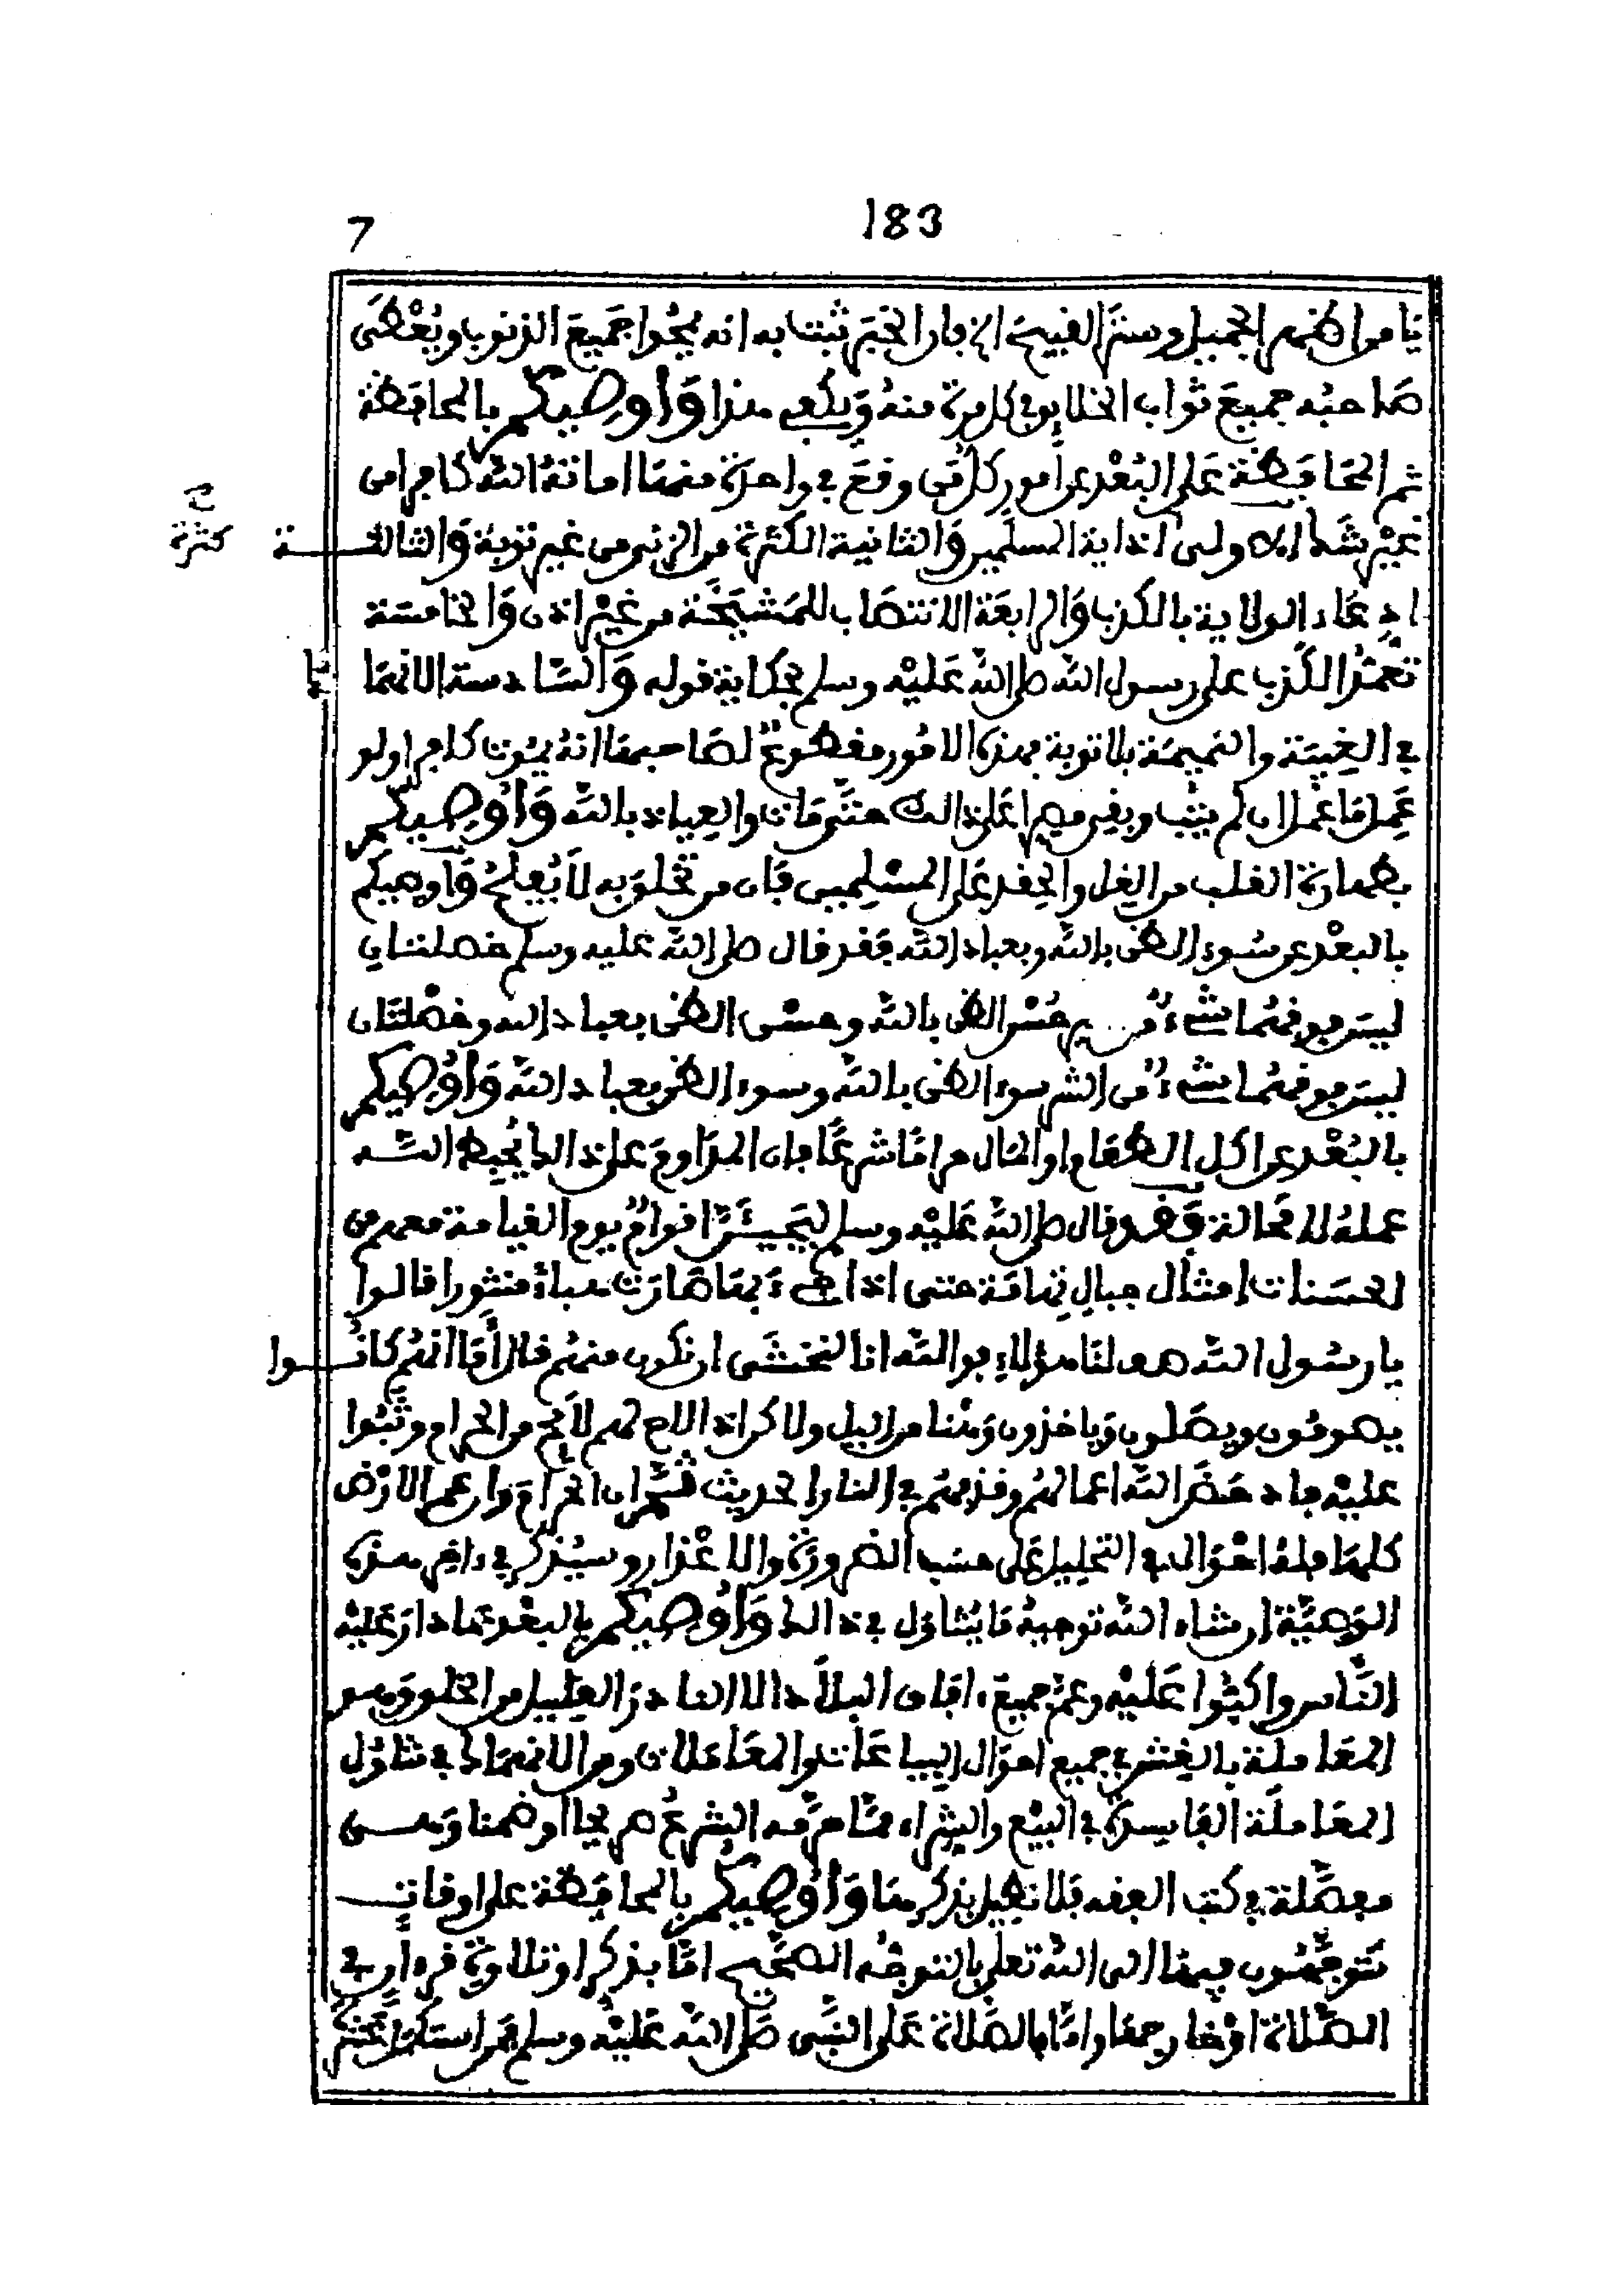 183
7
يا من اظهر الجميل وستر القبيح الخ فان الخبر ثبت به انه يمحوا جميع الذنوب ويعطى
صاحبه جميع ثواب الخلايق في كل مرة منه ويكفى هذا وَأوصيكم بالمحافظة
ثم المحافظة على البعد عن أمور كل من وقع في واحدة منها اماته الله كافرا من
غير شك الاولى اذاية المسلمين وَالثانية الكثرة من الزنى من غير توبة وَالثالثة
كثرة
صح
ادعاء الولاية بالكذب وَالرابعة الانتصاب للمشيخة من غير اذن وَالخامسة
تعمد الكذب على رسول الله صلى الله عليه وسلم بحكاية قوله وَالسادسة الانهماك
في الغيبة والنميمة بلا توبة بهذه الامور مقطوع لصاحبها انه يموت كافرا ولو
عمل ما عمل ان لم يتب وبقى مصرا على ذالك حتى مات والعياذ بالله وَأوصيكم
بطهارة القلب من الغل والحقد على المسلمين فان من تخلق به لا يفلح وَاوصيكم
بالبعد عن سوء الظن بالله وبعباد الله فقد قال صلى الله عليه وسلم خصلتان
ليس فوقهما شيء من حسن الظن بالله وحسن الظن بعباد الله وخصلتان
ليس فوقهما شيء من الشر سوء الظن بالله وسوء الظن بعباد الله وَأوصيكم
بالبعد عن اكل الطعام او المال حراما شرعا فان المداوم على ذالك يحبط الله
عمله لا محالة فقد قال صلى الله عليه وسلم ليجيئن اقوام يوم القيامة معهم من
الحسنات امثال جبال تهامة حتى اذا جيء بها صارت هباء منثورا قالوا
يا رسول الله صف لنا هؤلاء فوالله انا لنخشى ان نكون منهم قال أما انهم كانوا
يصومون ويصلون وياخذون وهنا من اليل ولاكن اذا لاح لهم لايح من الحرام وثبوا
عليه فادحض الله اعمالهم وقذفهم في النار الحديث ثم ان الحرام وان عم الارض
كلها فله احوال في التحليل على حسب الضرورة والاعذار وسيذكر في ءاخر هذه
الوصية ان شاء الله توجيه ما يتناول في ذالك وَأوصيكم بالبعد عما دار عليه
الناس واكبوا عليه وعم جميع ءافاق البلاد الا النادر القليل من الخلق وهو
المعاملة بالغش في جميع احوال البياعات والمعاملات وهو الانهماك في تناول
المعاملة الفاسدة في البيع والشراء مما حرمه الشرع صريحا او ضمنا وهى
مفصلة في كتب الفقه فلا نطيل بذكرها وَأوصيكم بالمحافظة على اوقات
تتوجهون فيها الى الله تعلى بالتوجه الصحيح اما بذكر او تلاوة قرءان في
الصلاة او خارجها واما بالصلاة على النبي صلى الله عليه وسلم فمن استكمل عنده